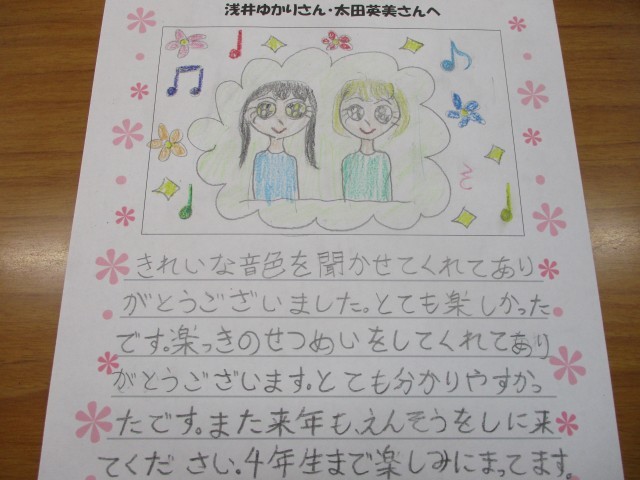 浅井ゆかりさん・太田英美さんへ
きれいな音色を聞かせてくれてあり
がとうございました。とても楽しかった
です。楽っきのせつめいをしてくれてあり
がとうございます。とても分かりやすかっ
たです。また来年も、えんそうをしに来
てください。4年生まで楽しみにまってます。